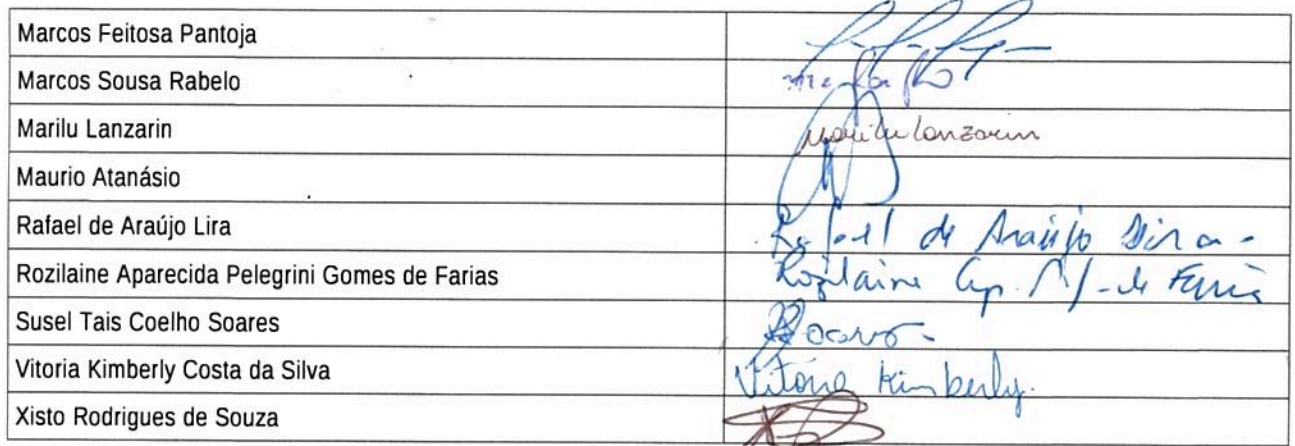 Marcos Feitosa Pantoja
Marcos Sousa Rabelo
Marilu Lanzarin Marilu Lanzarin
Maurio Atanásio
Rafael de Araújo Lira Rafael de Araújo Lira
Rozilaine Aparecida Pelegrini Gomes de Farias Rozilaine Ap. de Faria
Susel Tais Coelho Soares Soares
Vitoria Kimberly Costa da Silva Vitória Kimberly.
Xisto Rodrigues de Souza